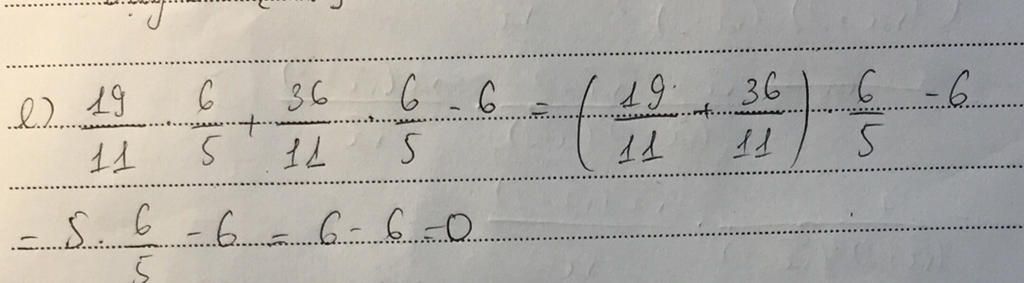 e) 19/11 · 6/5 + 36/11 · 6/5 - 6 = (19/11 + 36/11) · 6/5 - 6
= 5 · 6/5 - 6 = 6 - 6 = 0